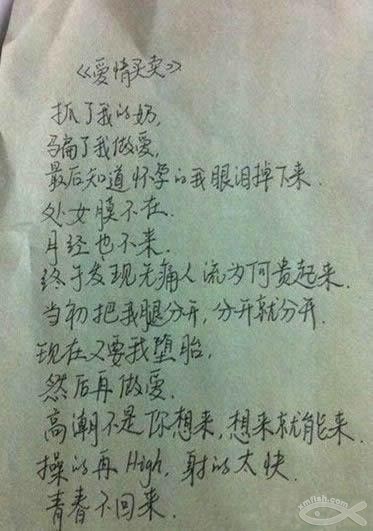 《爱情买卖》
抓了我的奶,
骗了我做爱,
最后知道怀孕的我眼泪掉下来.
处女膜不在.
月经也不来.
终于发现无痛人流为何贵起来.
当初把我腿分开,分开就分开.
现在又要我堕胎,
然后再做爱.
高潮不是你想来,想来就能来.
操的再High,射的太快.
青春不回来.
xmfish.com